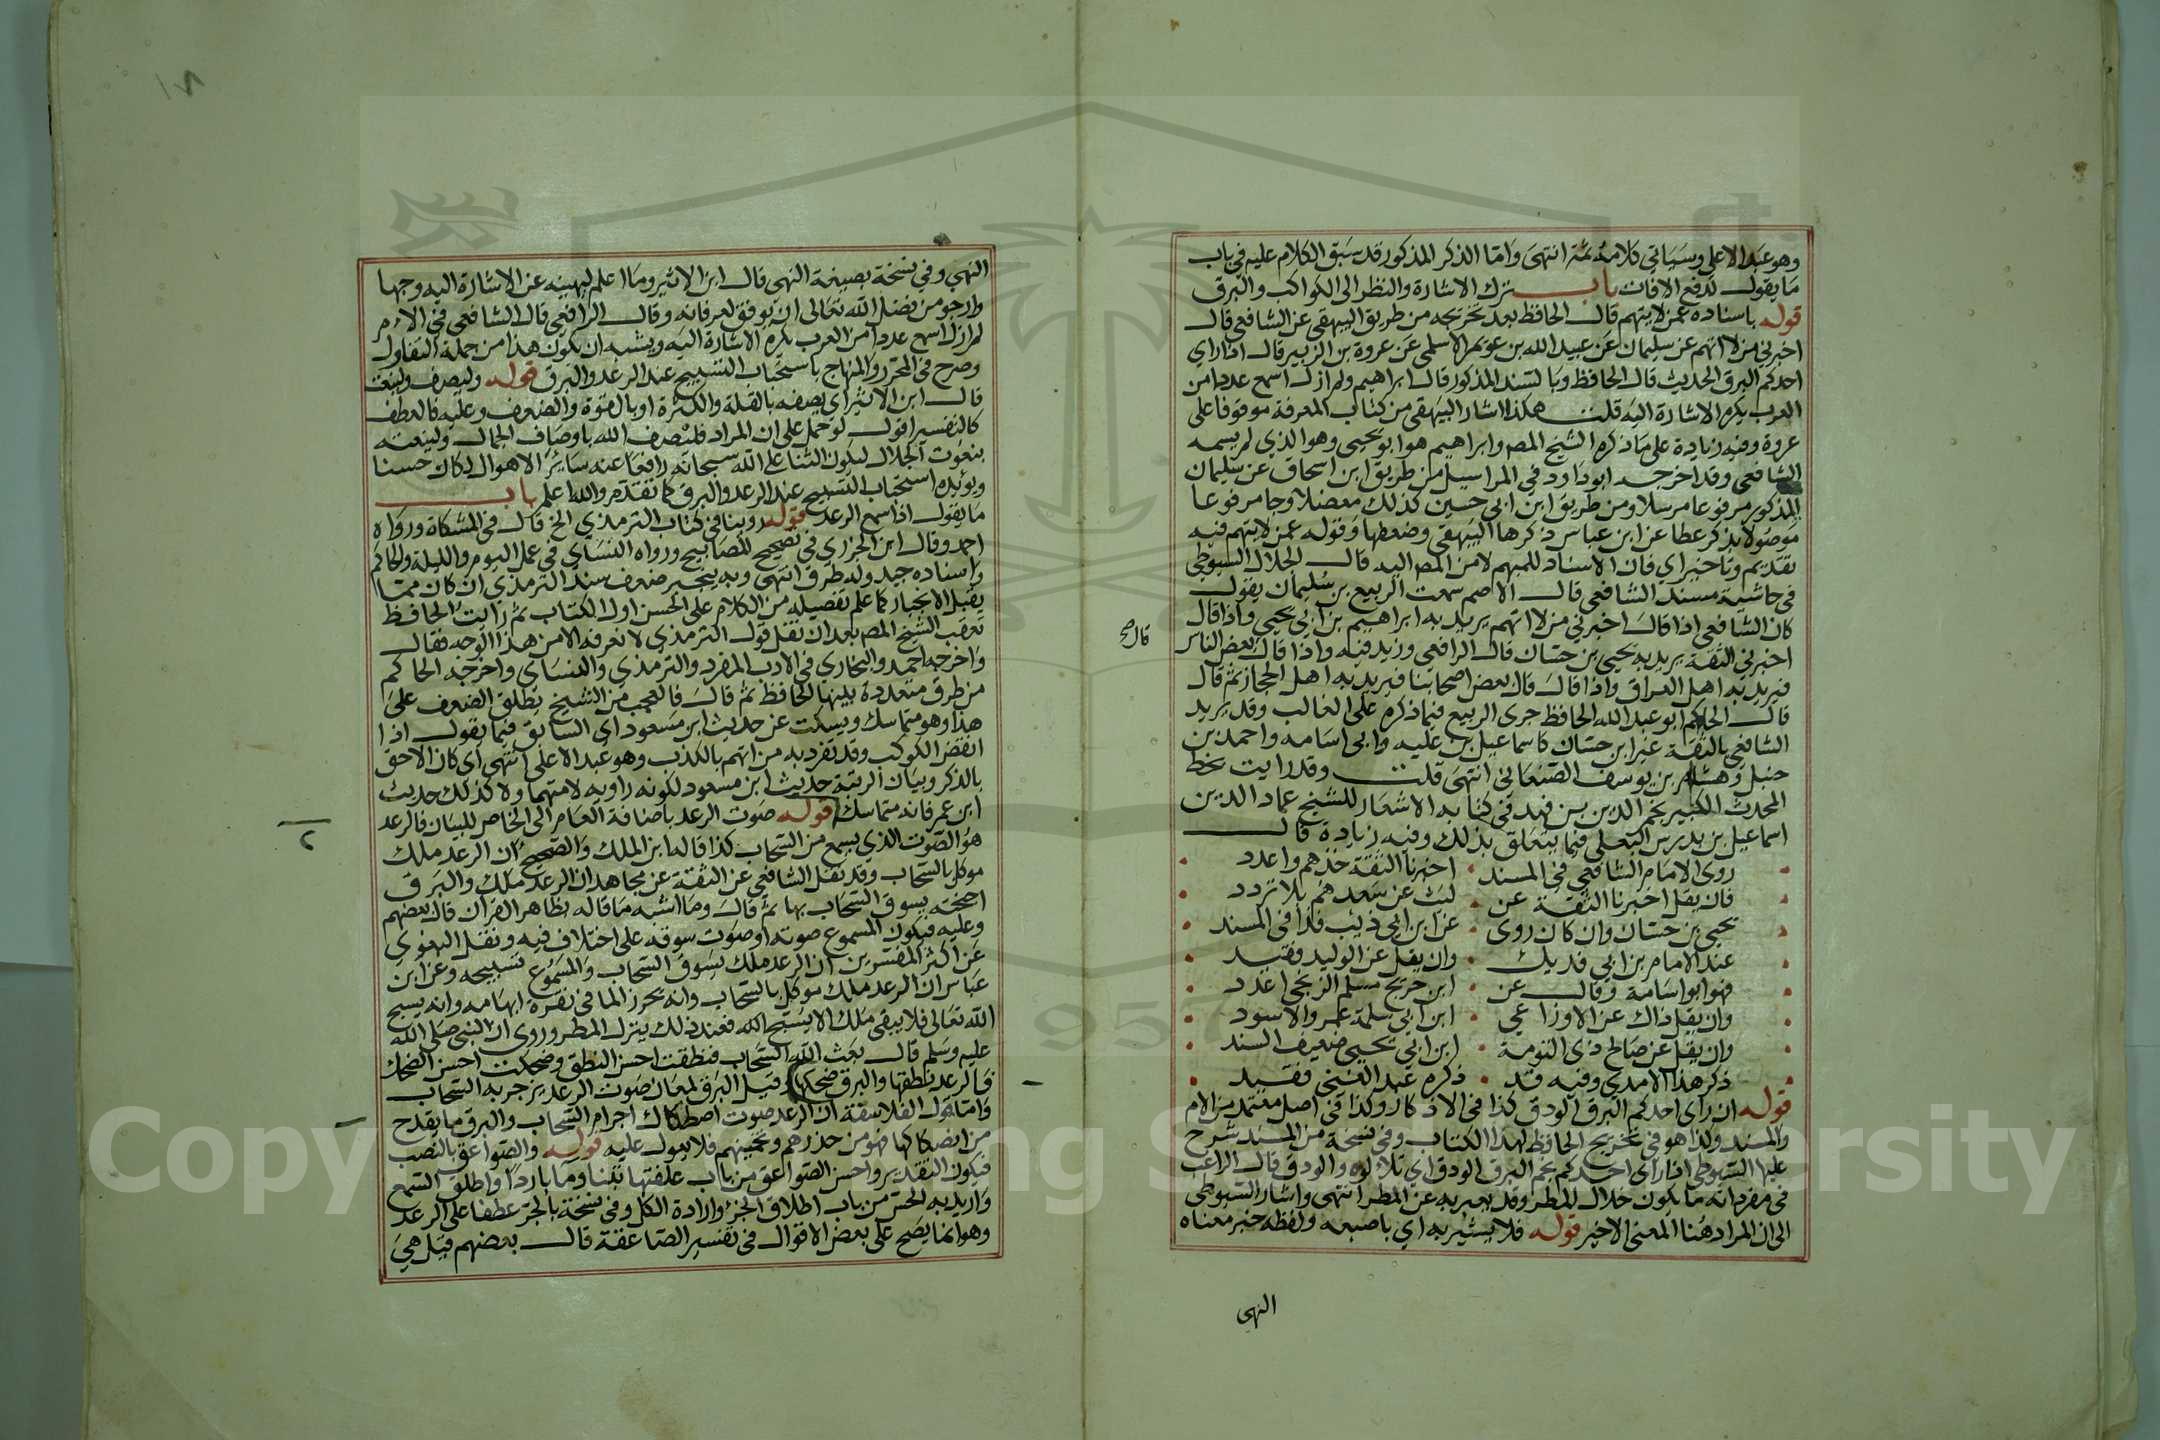 وهو عبد الاعلى وسياتي كلامه ثمة انتهى واما الذكر المذكور قد سبق الكلام عليه في باب
ما يقول لدفع الافات باب ترك الاشارة والنظر الى الكواكب والبرق
قوله باسناده عمن لا يتهم قال الحافظ بعد تخريجه من طريق البيهقي عن الشافعي قال
اخبرني من لا اتهم عن سليمان عن عبيد الله بن عويمر الاسلمي عن عروة بن الزبير قال اذا راي
احدكم البرق الحديث قال الحافظ وبالسند المذكور قال ابراهيم ولم ازل اسمع عددا من
العرب يكره الاشارة اليه قلت هكذا اشار البيهقي من كتاب المعرفة موقوفا على
عروة وفيه زيادة على ما ذكره الشيخ المص وابراهيم هو ابو يحيى وهو الذي لم يسمه
الشافعي وقد اخرجه ابو داود في المراسيل من طريق ابن اسحاق عن سليمان
المذكور مرفوعا مرسلا ومن طريق ابن ابي حسين كذلك معضلا وجا مرفوعا
موصولا بذكر عطا عن ابن عباس ذكرها البيهقي وضعفها وقوله عمن لا يتهم فيه
تقديم وتاخير اي فان الاسناد للمبهم لا من المص اليه قال الجلال السيوطي
في حاشية مسند الشافعي قال الاصم سمعت الربيع بن سليمان يقول
كان الشافعي اذا قال اخبرني من لا اتهم يريد به ابراهيم بن ابي يحيى واذا قال
اخبرني الثقة يريد به يحيى بن حسان قال الرافعي وزيد فيه واذا قال بعض الناس
فيريد به اهل العراق واذا قال قال بعض اصحابنا فيريد به اهل الحجاز ثم قال
قال الحاكم ابو عبد الله الحافظ جرى الربيع فيما ذكره على الغالب وقد يريد
الشافعي بالثقة غير ابن حسان كاسماعيل بن علية وابي اسامة واحمد بن
حنبل وهشام بن يوسف الصنعاني انتهى قلت وقد رايت بخط
المحدث الكبير نجم الدين بن فهد في كتابه الاشعار للشيخ عماد الدين
اسماعيل بن بدرس البعلي فيما يتعلق بذلك وفيه زيادة قال
روى الامام الشافعي في المسند اخبرنا الثقة خذهم واعدد
فان يقل اخبرنا الثقة عن ليث عن سعد هم بلا تردد
يحيى بن حسان وان كان روى عن ابن ابي ذئب فذا في المسند
عند الامام بن ابي فديك وان يقل عن الوليد وقيد
فهو ابو اسامة وقال عن ابن جريج مسلم الزنجي اعدد
وان يقل ذاك عن الاوزاعي ابن ابي سلمة عمرو الاسود
وان يقل عن صالح ذي التومة ابن ابي يحيى ضعيف السند
ذكر هذا الامدي وفيه قد ذكره عبد الغني فقيد
قوله ان راى احدكم البرق الودق كذا في الاذكار وكذا في اصل معتمد من الام
والمسند ولذا هو في تخريج الحافظ لهذا الكتاب وفي نسخة من المسند شرح
عليها السيوطي اذا راى احدكم البرق الودق اي تلالؤه والودق قال الراغب
في مفرداته ما يكون خلال المطر وقد يعبر به عن المطر انتهى واشار السيوطي
الى ان المراد هنا المعنى الاخير قوله فلا يشير به اي باصبعه ولفظه خبر معناه
قال صح
النهي
النهي وفي نسخة بصيغة النهي قال ابن الاثير وما اعلم لنهيه عن الاشارة اليه وجها
وارجو من فضل الله تعالى ان يوفق لعرفانه وقال الرافعي قال الشافعي في الام
لم ازل اسمع عددا من العرب يكره الاشارة اليه ويشبه ان يكون هذا من جملة التفاول
وصرح في المحرر والمنهاج باستحباب التسبيح عند الرعد والبرق قوله وليصف ولينعت
قال ابن الاثير اي يصفه بالقلة والكثرة او بالقوة والضعف وعليه فالعطف
كالتفسير اقول لو حمل على ان المراد فليصف الله باوصاف الجمال ولينعته
بنعوت الجلال ليكون الثناء على الله سبحانه رافعا عنه سائر الاهوال لكان حسنا
ويؤيده استحباب التسبيح عند الرعد والبرق كما تقدم والله اعلم باب
ما يقول اذا سمع الرعد قوله روينا في كتاب الترمذي الخ قال في المشكاة ورواه
احمد وقال ابن الجزري في تصحيح المصابيح ورواه النسائي في عمل اليوم والليلة والحاكم
واسناده جيد وله طرق انتهى وبه ينجبر ضعف سند الترمذي ان كان مما
يقبل الانجبار كما علم تفصيله من الكلام على الحسن اول الكتاب ثم رايت الحافظ
تعقب الشيخ المص بعد ان نقل قول الترمذي لا نعرفه الا من هذا الوجه فقال
واخرجه احمد والبخاري في الادب المفرد والترمذي والنسائي واخرجه الحاكم
من طرق متعددة بينها الحافظ ثم قال فالعجب من الشيخ يطلق الضعف على
هذا وهو متماسك ويسكت عن حديث ابن مسعود اي السابق فيما يقول اذا
انقض الكوكب وقد تفرد به من اتهم بالكذب وهو عبد الاعلى انتهى اي كان الاحق
بالذكر وبيان الرتبة حديث ابن مسعود لكونه راويه لا متهما ولا كذلك حديث
ابن عمر فانه متماسك قوله صوت الرعد باضافة العام الى الخاص للبيان فالرعد
هو الصوت الذي يسمع من السحاب كذا قاله ابن الملك والصحيح ان الرعد ملك
موكل بالسحاب وقد نقل الشافعي عن الثقة عن مجاهد ان الرعد ملك والبرق
اجنحته يسوق السحاب بها ثم قال وما اشبه ما قاله بظاهر القران قال بعضهم
وعليه فيكون المسموع صوته او صوت سوقه على اختلاف فيه ونقل البغوي
عن اكثر المفسرين ان الرعد ملك يسوق السحاب والمسموع تسبيحه وعن ابن
عباس ان الرعد ملك موكل بالسحاب وانه يحرز الما في نقرة ابهامه وانه يسبح
الله تعالى فلا يبقى ملك الا يسبح الله فعند ذلك ينزل المطر وروي ان النبي صلى الله
عليه وسلم قال بعث الله السحاب فنطقت احسن النطق وضحكت احسن الضحك
فالرعد نطقها والبرق ضحكها وقيل البرق لمعان صوت الرعد يزجر به السحاب
واما قول الفلاسفة ان الرعد صوت اصطكاك اجرام السحاب والبرق ما يقدح
من اصطكاكها فهو من حذرهم وتخمينهم فلا يعول عليه قوله والصواعق بالنصب
فيكون التقدير واحس الصواعق من باب علفتها تبنا وما باردا واطلق السمع
واريد به الحس من باب اطلاق الجز وارادة الكل وفي نسخة بالجر عطفا على الرعد
وهو انما يصح على بعض الاقوال في تفسير الصاعقة قال بعضهم قيل هي
Copyright © King Saud University
957